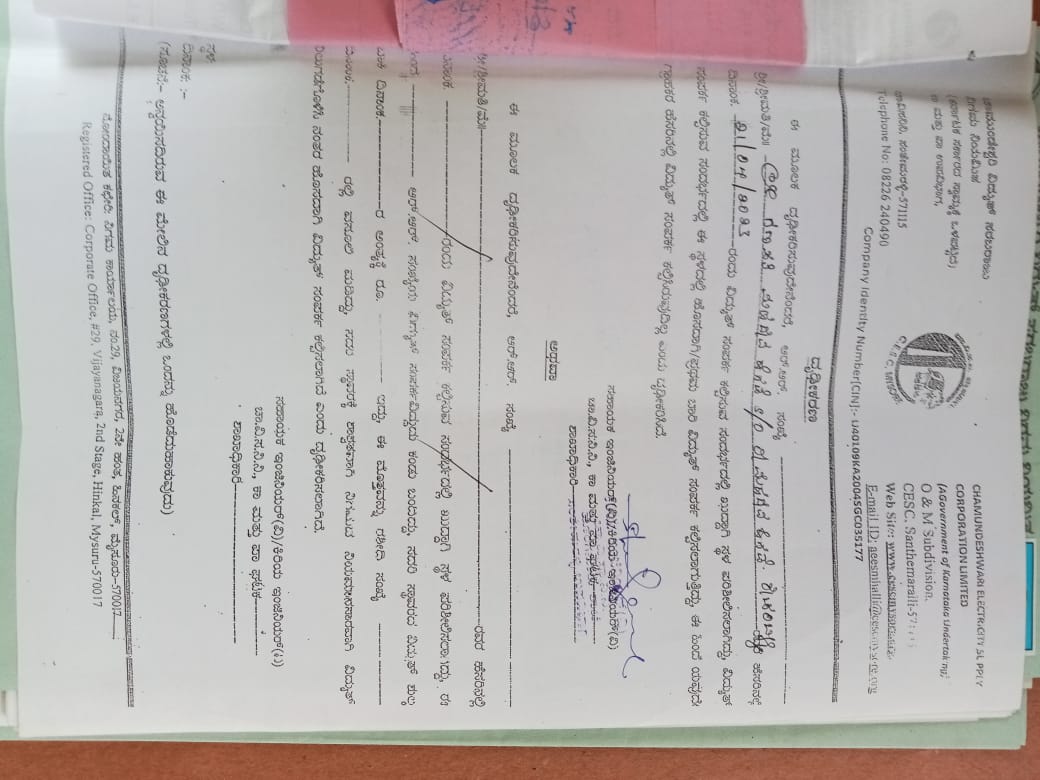 ಚಾಮುಂಡೇಶ್ವರಿ ವಿದ್ಯುತ್ ಸರಬರಾಜು
ನಿಗಮ ನಿಯಮಿತ
(ಕರ್ನಾಟಕ ಸರ್ಕಾರದ ಸ್ವಾಮ್ಯಕ್ಕೆ ಒಳಪಟ್ಟಿದೆ)
ಕಾ ಮತ್ತು ಪಾ ಉಪವಿಭಾಗ,
ಚಾವಿಸನಿನಿ, ಸಂತೇಮರಳ್ಳಿ-571115
Telephone No: 08226 240490
C.E.S.C. MYSORE
CHAMUNDESHWARI ELECTRICITY SUPPLY
CORPORATION LIMITED
(AGovernment of Karnataka Undertaking)
O & M Subdivision,
CESC. Santhemaralli-571115
Web Site: www.cescmysore.org
E-mail ID: aeesmhalli@cescmysore.org
Company Identity Number[CIN]:- U40109KA2004SGC035177
ದೃಢೀಕರಣ
ಈ ಮೂಲಕ ದೃಢೀಕರಿಸುವುದೇನೆಂದರೆ, ಆರ್.ಆರ್. ಸಂಖ್ಯೆ
ಶ್ರೀ/ಶ್ರೀಮತಿ/ಮೆ॥ S/O ಹೆಸರಿನಲ್ಲಿ
ದಿನಾಂಕ. 21/04/2023 ರಂದು ವಿದ್ಯುತ್ ಸಂಪರ್ಕ ಕಲ್ಪಿಸುವ ಸಂದರ್ಭದಲ್ಲಿ ಖುದ್ದಾಗಿ ಸ್ಥಳ ಪರಿಶೀಲಿಸಲಾಗಿದ್ದು, ವಿದ್ಯುತ್
ಸಂಪರ್ಕ ಕಲ್ಪಿಸುವ ಸಂದರ್ಭದಲ್ಲಿ ಈ ಸ್ಥಳದಲ್ಲಿ ಹೊಸದಾಗಿ/ಪ್ರಥಮ ಬಾರಿ ವಿದ್ಯುತ್ ಸಂಪರ್ಕ ಕಲ್ಪಿಸಲಾಗುತ್ತಿದ್ದು, ಈ ಹಿಂದೆ ಯಾವುದೇ
ಗ್ರಾಹಕರ ಹೆಸರಿನಲ್ಲಿ ವಿದ್ಯುತ್ ಸಂಪರ್ಕ ಕಲ್ಪಿಸಿರುವುದಿಲ್ಲ ಎಂದು ದೃಢೀಕರಿಸಿದೆ.
ಸಹಾಯಕ ಇಂಜಿನಿಯರ್(ವಿ)/ಕಿರಿಯ ಇಂಜಿನಿಯರ್(ವಿ)
ಚಾ.ವಿ.ಸ.ನಿ.ನಿ, ಕಾ ಮತ್ತು ಪಾ ಘಟಕ
ಶಾಖಾಧಿಕಾರಿ
ಅಥವಾ
ಈ ಮೂಲಕ ದೃಢೀಕರಿಸುವುದೇನೆಂದರೆ, ಆರ್.ಆರ್. ಸಂಖ್ಯೆ
ಶ್ರೀ/ಶ್ರೀಮತಿ/ಮೆ॥ ರವರ ಹೆಸರಿನಲ್ಲಿ
ದಿನಾಂಕ. ರಂದು ವಿದ್ಯುತ್ ಸಂಪರ್ಕ ಕಲ್ಪಿಸುವ ಸಂದರ್ಭದಲ್ಲಿ ಖುದ್ದಾಗಿ ಸ್ಥಳ ಪರಿಶೀಲಿಸಲಾಗಿದ್ದು,
ಆರ್.ಆರ್. ಸಂಖ್ಯೆಯ ವಿದ್ಯುತ್ ಸಂಪರ್ಕವಿದ್ದುದು ಕಂಡು ಬಂದಿದ್ದು, ಸದರಿ ಸ್ಥಾವರದ ವಿದ್ಯುತ್ ಶುಲ್ಕ
ಬಾಕಿ ದಿನಾಂಕ. ರ ಅಂತ್ಯಕ್ಕೆ ರೂ. ಇದ್ದು, ಈ ಮೊತ್ತವನ್ನು ರಶೀದಿ ಸಂಖ್ಯೆ
ದಿನಾಂಕ. ರಲ್ಲಿ ವಸೂಲಿ ಮಾಡಿದ್ದು, ಸದರಿ ಸ್ಥಾವರಕ್ಕೆ ಶಾಶ್ವತವಾಗಿ ನಿಗಮದ ನಿಯಮಾನುಸಾರವಾಗಿ ವಿದ್ಯುತ್
ನಿಲುಗಡೆಗೊಳಿಸಿ ನಂತರ ಹೊಸದಾಗಿ ವಿದ್ಯುತ್ ಸಂಪರ್ಕ ಕಲ್ಪಿಸಲಾಗಿದೆ ಎಂದು ದೃಢೀಕರಿಸಲಾಗಿದೆ.
ಸಹಾಯಕ ಇಂಜಿನಿಯರ್(ವಿ)/ಕಿರಿಯ ಇಂಜಿನಿಯರ್(ವಿ)
ಚಾ.ವಿ.ಸ.ನಿ.ನಿ., ಕಾ ಮತ್ತು ಪಾ ಘಟಕ
ಶಾಖಾಧಿಕಾರಿ
ಸ್ಥಳ:
ದಿನಾಂಕ: :-
(ಸೂಚನೆ:- ಅನ್ವಯಿಸದಿರುವ ಈ ಮೇಲಿನ ದೃಢೀಕರಣಗಳಲ್ಲಿ ಒಂದನ್ನು ಹೊಡೆದುಹಾಕುವುದು)
ನೋಂದಾಯಿತ ಕಛೇರಿ: ನಿಗಮ ಕಾರ್ಯಾಲಯ, ನಂ.29, ವಿಜಯನಗರ, 2ನೇ ಹಂತ, ಹಿನಕಲ್, ಮೈಸೂರು-570017
Registered Office: Corporate Office, #29, Vijayanagara, 2nd Stage, Hinkal, Mysuru-570017